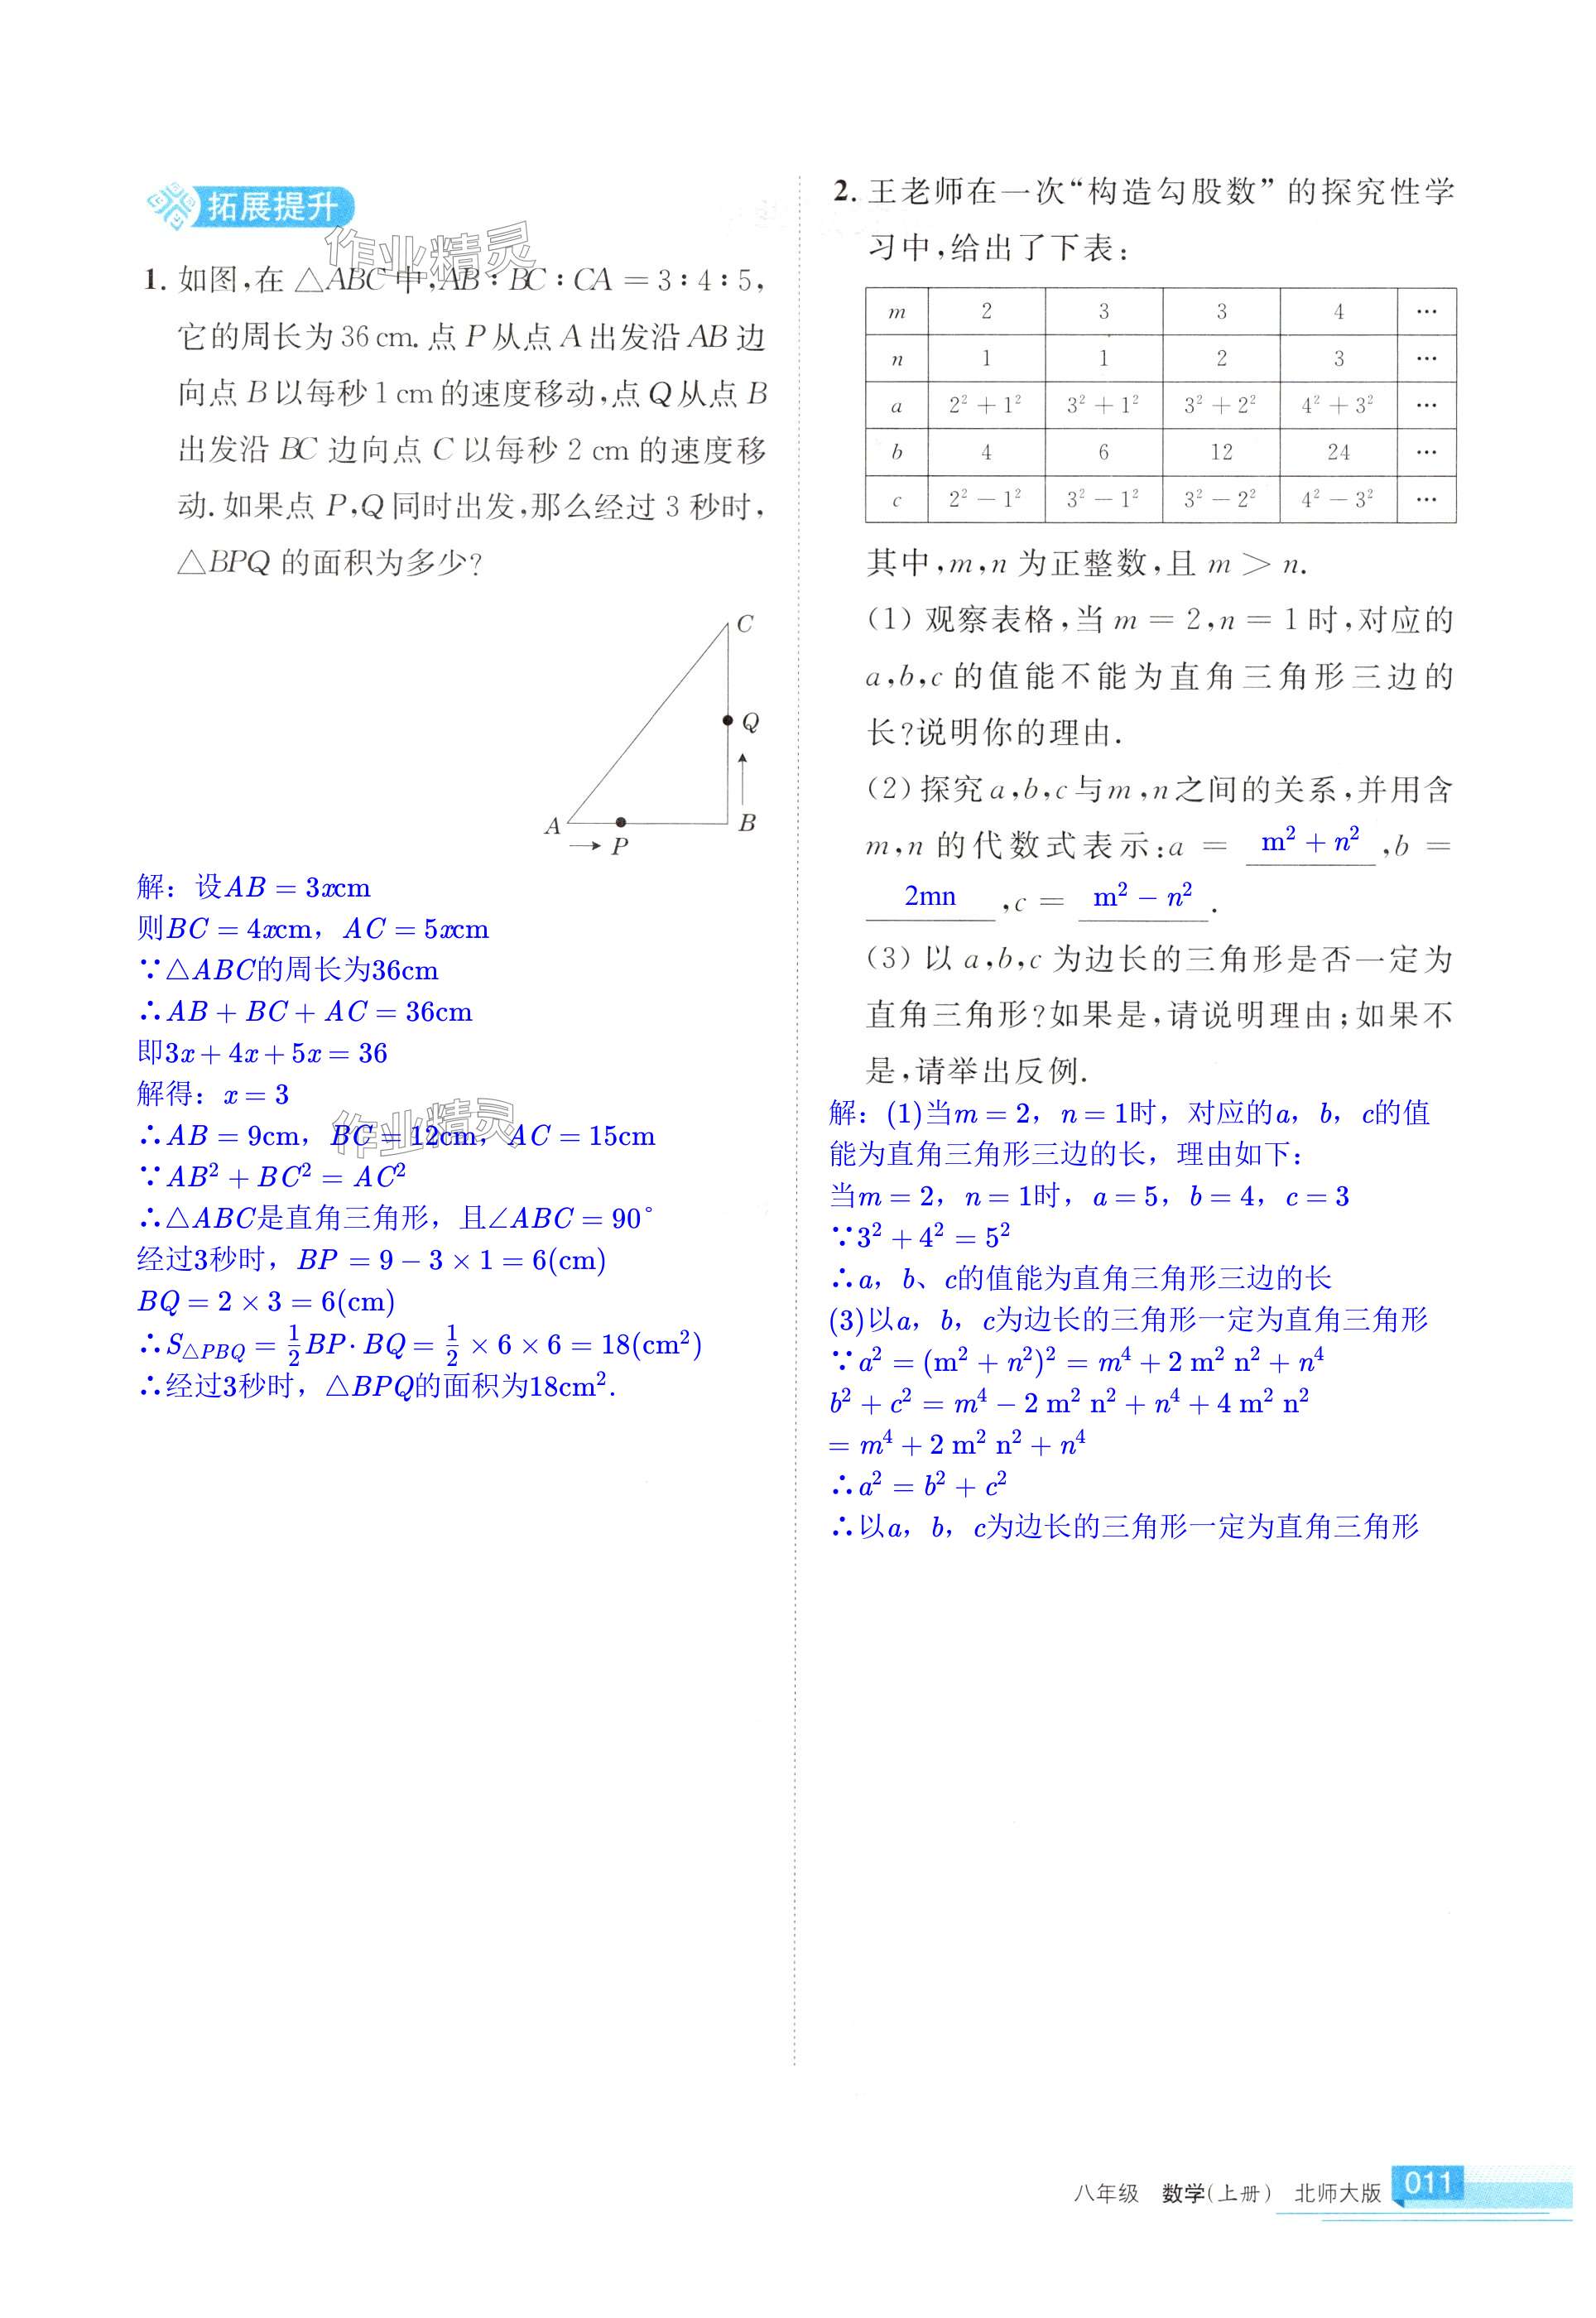 拓展提升
作业精灵
1. 如图,在 △ABC 中,AB∶BC∶CA＝3∶4∶5,
它的周长为 36 cm. 点 P 从点 A 出发沿 AB 边
向点 B 以每秒 1 cm 的速度移动,点 Q 从点 B
出发沿 BC 边向点 C 以每秒 2 cm 的速度移
动. 如果点 P,Q 同时出发,那么经过 3 秒时,
△BPQ 的面积为多少?
C
Q
A
B
P
解：设AB = 3xcm
则BC = 4xcm，AC = 5xcm
∵△ABC的周长为36cm
∴AB + BC + AC = 36cm
即3x + 4x + 5x = 36
解得：x = 3
作业精灵
∴AB = 9cm，BC = 12cm，AC = 15cm
∵AB² + BC² = AC²
∴△ABC是直角三角形，且∠ABC = 90°
经过3秒时，BP = 9 − 3 × 1 = 6(cm)
BQ = 2 × 3 = 6(cm)
∴S△PBQ = 1/2 BP · BQ = 1/2 × 6 × 6 = 18(cm²)
∴经过3秒时，△BPQ的面积为18cm².
2. 王老师在一次“构造勾股数”的探究性学
习中,给出了下表:
m 2 3 3 4 …
n 1 1 2 3 …
a 2²＋1² 3²＋1² 3²＋2² 4²＋3² …
b 4 6 12 24 …
c 2²－1² 3²－1² 3²－2² 4²－3² …
其中,m,n 为正整数,且 m ＞ n.
(1) 观察表格,当 m ＝ 2,n ＝ 1 时,对应的
a,b,c 的值能不能为直角三角形三边的
长?说明你的理由.
(2) 探究 a,b,c 与 m,n 之间的关系,并用含
m,n 的代数式表示:a ＝ m² + n² ,b ＝
2mn ,c ＝ m² − n² .
(3) 以 a,b,c 为边长的三角形是否一定为
直角三角形?如果是,请说明理由;如果不
是,请举出反例.
解：(1)当m = 2，n = 1时，对应的a，b，c的值
能为直角三角形三边的长，理由如下：
当m = 2，n = 1时，a = 5，b = 4，c = 3
∵3² + 4² = 5²
∴a，b、c的值能为直角三角形三边的长
(3)以a，b，c为边长的三角形一定为直角三角形
∵a² = (m² + n²)² = m⁴ + 2 m² n² + n⁴
b² + c² = m⁴ − 2 m² n² + n⁴ + 4 m² n²
= m⁴ + 2 m² n² + n⁴
∴a² = b² + c²
∴以a，b，c为边长的三角形一定为直角三角形
八年级 数学(上册) 北师大版 011